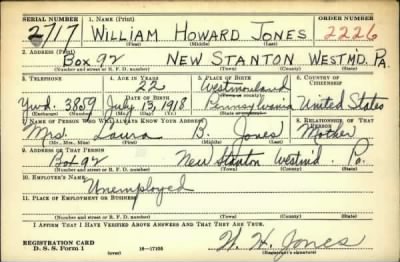 SERIAL NUMBER 1. NAME (Print) ORDER NUMBER
2717 WILLIAM HOWARD JONES 2226
(First) (Middle) (Last)
2. ADDRESS (Print)
Box 92 NEW STANTON WESTM'D. PA.
(Number and street or R. F. D. number) (Town) (County) (State)
3. TELEPHONE 4. AGE IN YEARS 5. PLACE OF BIRTH 6. COUNTRY OF CITIZENSHIP
22 Westmoreland
DATE OF BIRTH (Town or county)
Ywd. 3859 July 13, 1918 Pennsylvania United States
(Exchange) (Number) (Mo.) (Day) (Yr.) (State or country)
7. NAME OF PERSON WHO WILL ALWAYS KNOW YOUR ADDRESS 8. RELATIONSHIP OF THAT PERSON
Mrs. Laura B. Jones Mother
(Mr., Mrs., Miss) (First) (Middle) (Last)
9. ADDRESS OF THAT PERSON
Box 92 New Stanton Westm'd. Pa.
(Number and street or R. F. D. number) (Town) (County) (State)
10. EMPLOYER'S NAME
Unemployed
11. PLACE OF EMPLOYMENT OR BUSINESS
(Number and street or R. F. D. number) (Town) (County) (State)
I AFFIRM THAT I HAVE VERIFIED ABOVE ANSWERS AND THAT THEY ARE TRUE.
REGISTRATION CARD
D. S. S. Form 1 (over) 16—17105 W. H. Jones
(Registrant's signature)